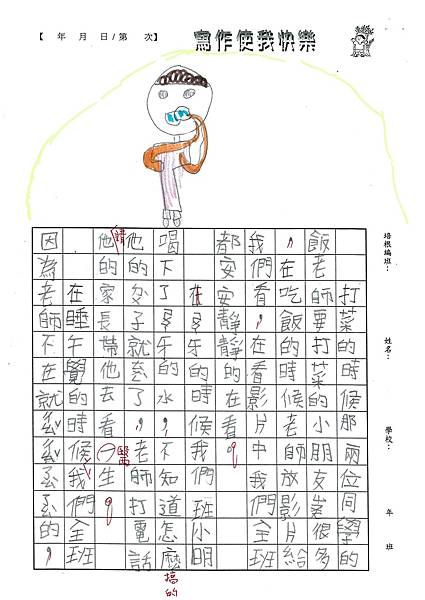 【　年　月　日/第　次】
寫作使我快樂
培根編班：
姓名：
學校：
年　班
打菜的時候那兩位同學的
飯老師要打菜的小朋友差很多
，在吃飯的時候老師放影片給
我們看，在看影片中我們全班
都安安靜靜的在看。
在刷牙的時候我們班小明
喝下了刷牙的水，不知道怎麼搞的
他的肚子就痛了，老師打電話
請他的家長帶他去看醫生。
在睡午覺的時候我們全班
因為老師不在就的，